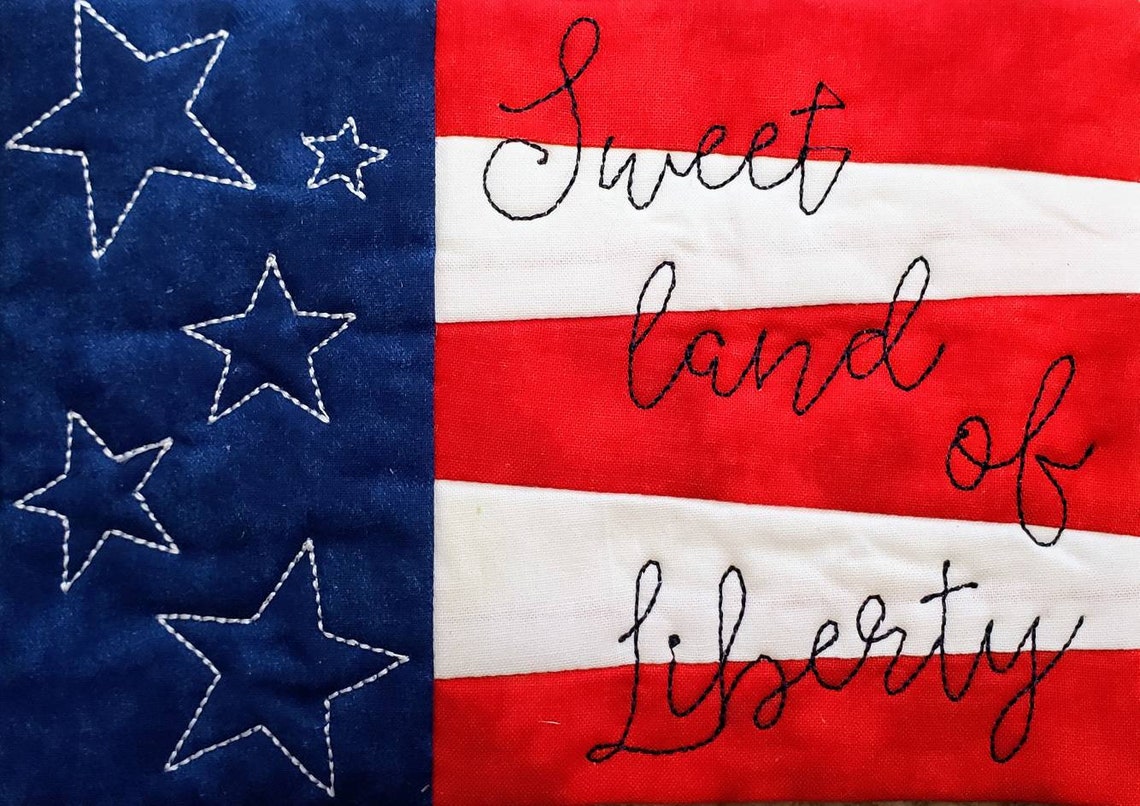 Sweet
land
of
Liberty